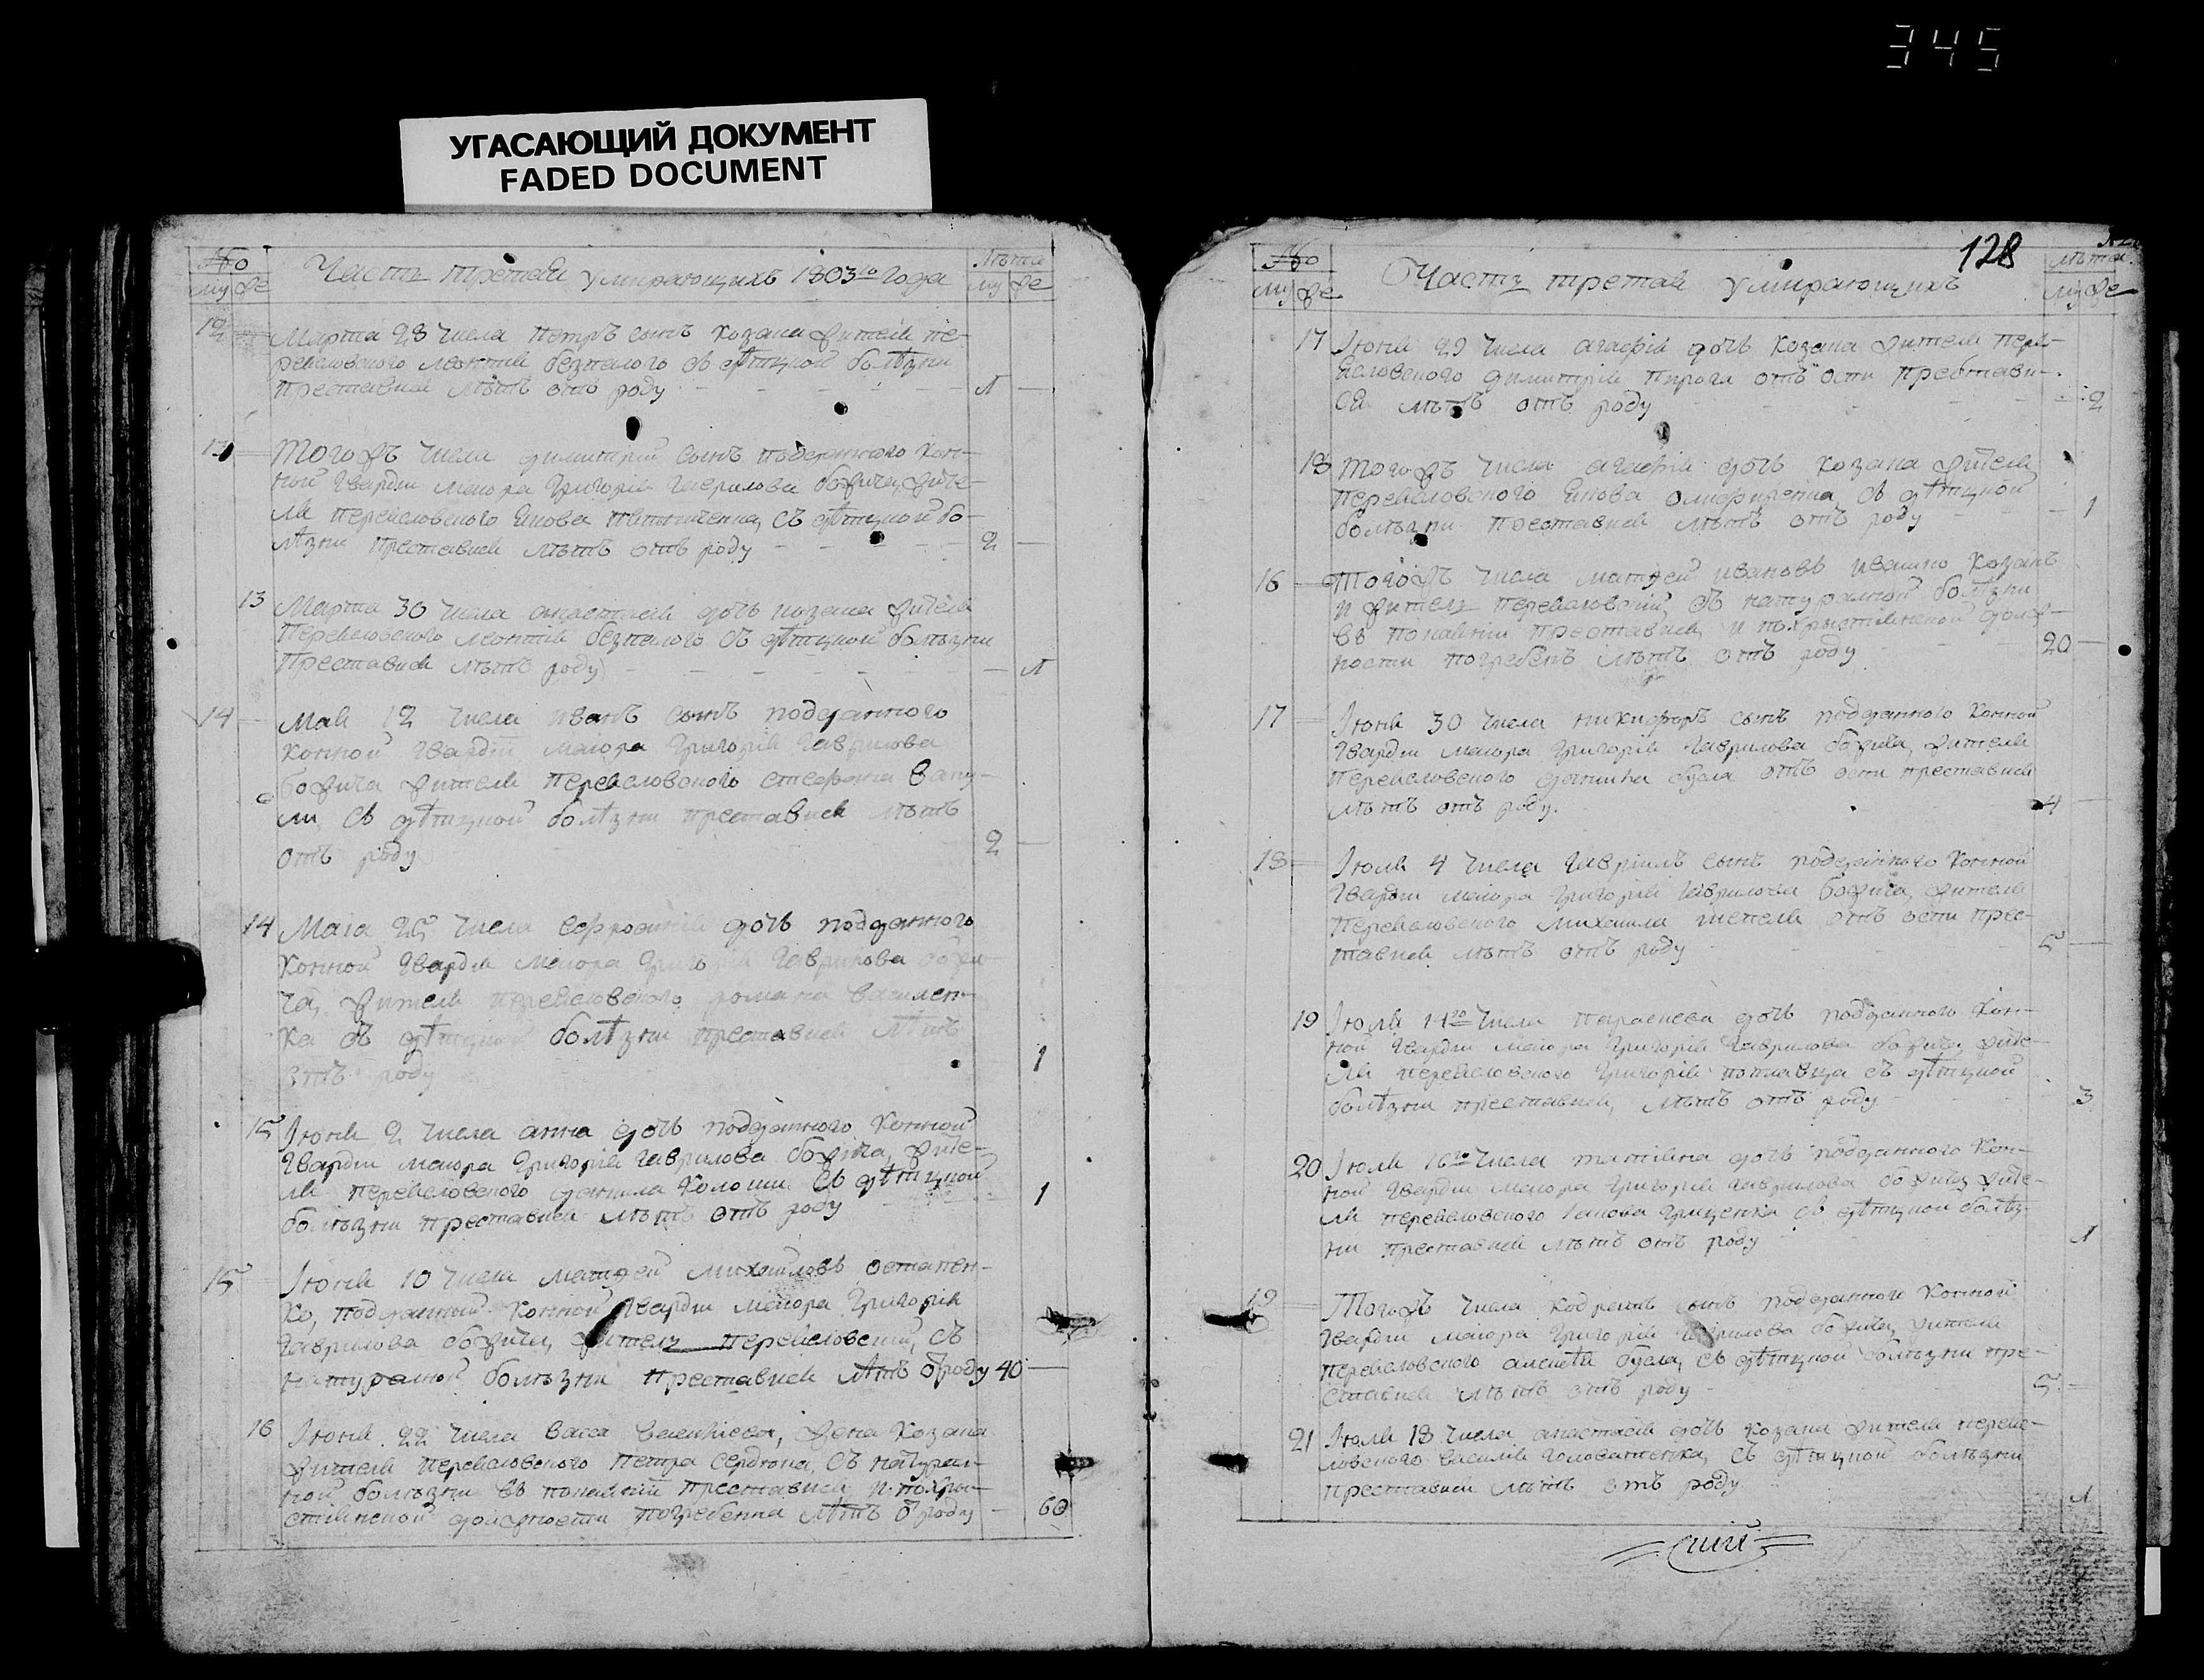 345
УГАСАЮЩИЙ ДОКУМЕНТ
FADED DOCUMENT
№
Часть третая умирающихъ 1803го года
Лѣта
му же
му же
12
Марта 28 числа Петръ сынъ козака жителя пе-
реяловского Леонтия безпалого съ дѣтцкой болѣзни
преставися лѣтъ отъ роду
1
13
Тогожъ числа димитрий сынъ подданного кон-
ной гвардии маиора Григорія Гаврилова божича, жите-
ля переяловского Якова съ дѣтцкой бо-
лѣзни преставися лѣтъ отъ роду
2
13
Марта 30 числа анастасия дочь козака жителя
Переяловского Леонтия безпалого съ дѣтцкой болѣзни
Преставися лѣтъ роду
1
14
Мая 12 числа иванъ сынъ подданного
конной гвардии маиора Григорія Гаврилова
божича жителя переяловского стефана
съ дѣтцкой болѣзни преставися лѣтъ
отъ роду
2
14
Маіа 25 числа дочь подданного
конной гвардии маиора Григорія Гаврилова божи-
ча, жителя переяловского романа василен-
ка съ дѣтцкой болѣзни преставися лѣтъ
отъ роду
1
15
Іюня 2 числа анна дочь подданного конной
гвардии маиора Григорія Гаврилова божича, жите-
ля переяловского данила Коломи съ дѣтцкой
болѣзни преставися лѣтъ отъ роду
1
15
Іюня 10 числа матфей михайловъ остапен-
ко, подданный конной гвардии маиора Григорія
Гаврилова божича, житель переяловский, съ
натуралной болѣзни преставися лѣтъ о роду 40
16
Іюня 22 числа васса жена козака
жителя переяловского Петра Сердюка, съ натурал-
ной болѣзни въ покаяніи преставися, и похри-
стиянской должности погребенна лѣтъ о роду
60
128
№
Часть третая умирающихъ
лѣта
му же
му же
17
Іюня 29 числа агафія дочь козака жителя пере-
яловского димитрия Пирога отъ оспи престави-
ся лѣтъ отъ роду
2
18
Тогожъ числа агафія дочь козака жителя
переяловского Якова съ дѣтцкой
болѣзни преставися лѣтъ отъ роду
1
16
Тогожъ числа матфей ивановъ ивашко козакъ
и житель переяловский, съ натуралной болѣзни
въ покаяніи преставися, и похрыстиянской долж-
ности погребенъ лѣтъ отъ роду
20
17
Іюня 30 числа никифоръ сынъ подданного конной
гвардии маиора Григорія Гаврилова божича, жителя
переяловского данила бусла отъ оспи преставися
лѣтъ отъ роду.
4
18
Іюля 4 числа Гавріилъ сынъ подданного конной
гвардии маиора Григорія Гаврилова божича, жителя
Переяловского Михаила шепеля отъ оспи прес-
тавися лѣтъ отъ роду
5
19
Іюля 14го числа параскева дочь подданного кон-
ной гвардии маиора Григорія Гаврилова божича, жите-
ля переяловского Григорія съ дѣтцкой
болѣзни преставися, лѣтъ отъ роду
3
20
Іюля 16го числа татіяна дочь подданного кон-
ной гвардии маиора Григорія Гаврилова божича, жите-
ля переяловского Іакова Гриценка съ дѣтцкой болѣз-
ни преставися лѣтъ отъ роду
1
19
Тогожъ числа кодратъ сынъ подданного конной
гвардии маиора Григорія Гаврилова божича, жителя
переяловского алексѣя бусла, съ дѣтцкой болѣзни пре-
ставися лѣтъ отъ роду
5
21
Іюля 18 числа анастасія дочь козака жителя перея-
ловского василія головатенка, съ дѣтцкой болѣзни
преставися лѣтъ отъ роду
1